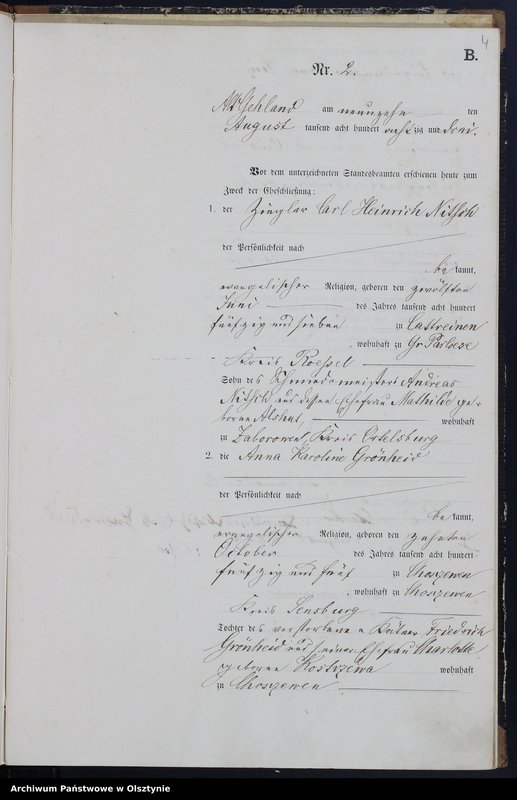 4
B.
Nr. 2.
Alt Gehland am neunzehn ten
August tausend acht hundert achtzig und drei.
Vor dem unterzeichneten Standesbeamten erschienen heute zum
Zweck der Eheschließung:
1. der Ziegler Carl Heinrich Nitsch
der Persönlichkeit nach
be kannt,
evangelischer Religion, geboren den zwölften
Juni des Jahres tausend acht hundert
fünfzig und sieben zu
, wohnhaft zu Gr Parlese
Kreis Roessel
Sohn des Schmiedemeisters Andreas
Nitsch und dessen Ehefrau Mathilde ge-
borene wohnhaft
zu Zaborowen, Kreis Ortelsburg
2. die Anna Karoline Grönheid
der Persönlichkeit nach
be kannt,
evangelischer Religion, geboren den zehnten
October des Jahres tausend acht hundert
fünfzig und fünf zu Choszewen
, wohnhaft zu Choszewen
Kreis Sensburg
Tochter des verstorbenen Friedrich
Grönheid und seiner Ehefrau Charlotte,
geborene Kostrzewa wohnhaft
zu Choszewen
Archiwum Państwowe w Olsztynie